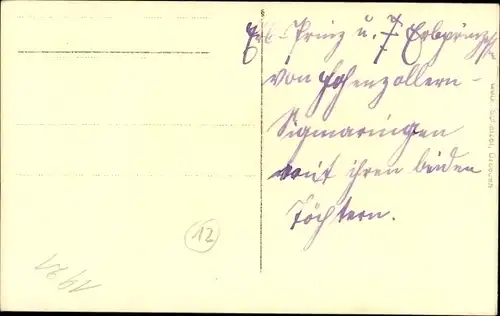 Erb-Prinz u. Erbprinzess
von Hohenzollern-
Sigmaringen
mit ihren beiden
Töchtern.
12
1921